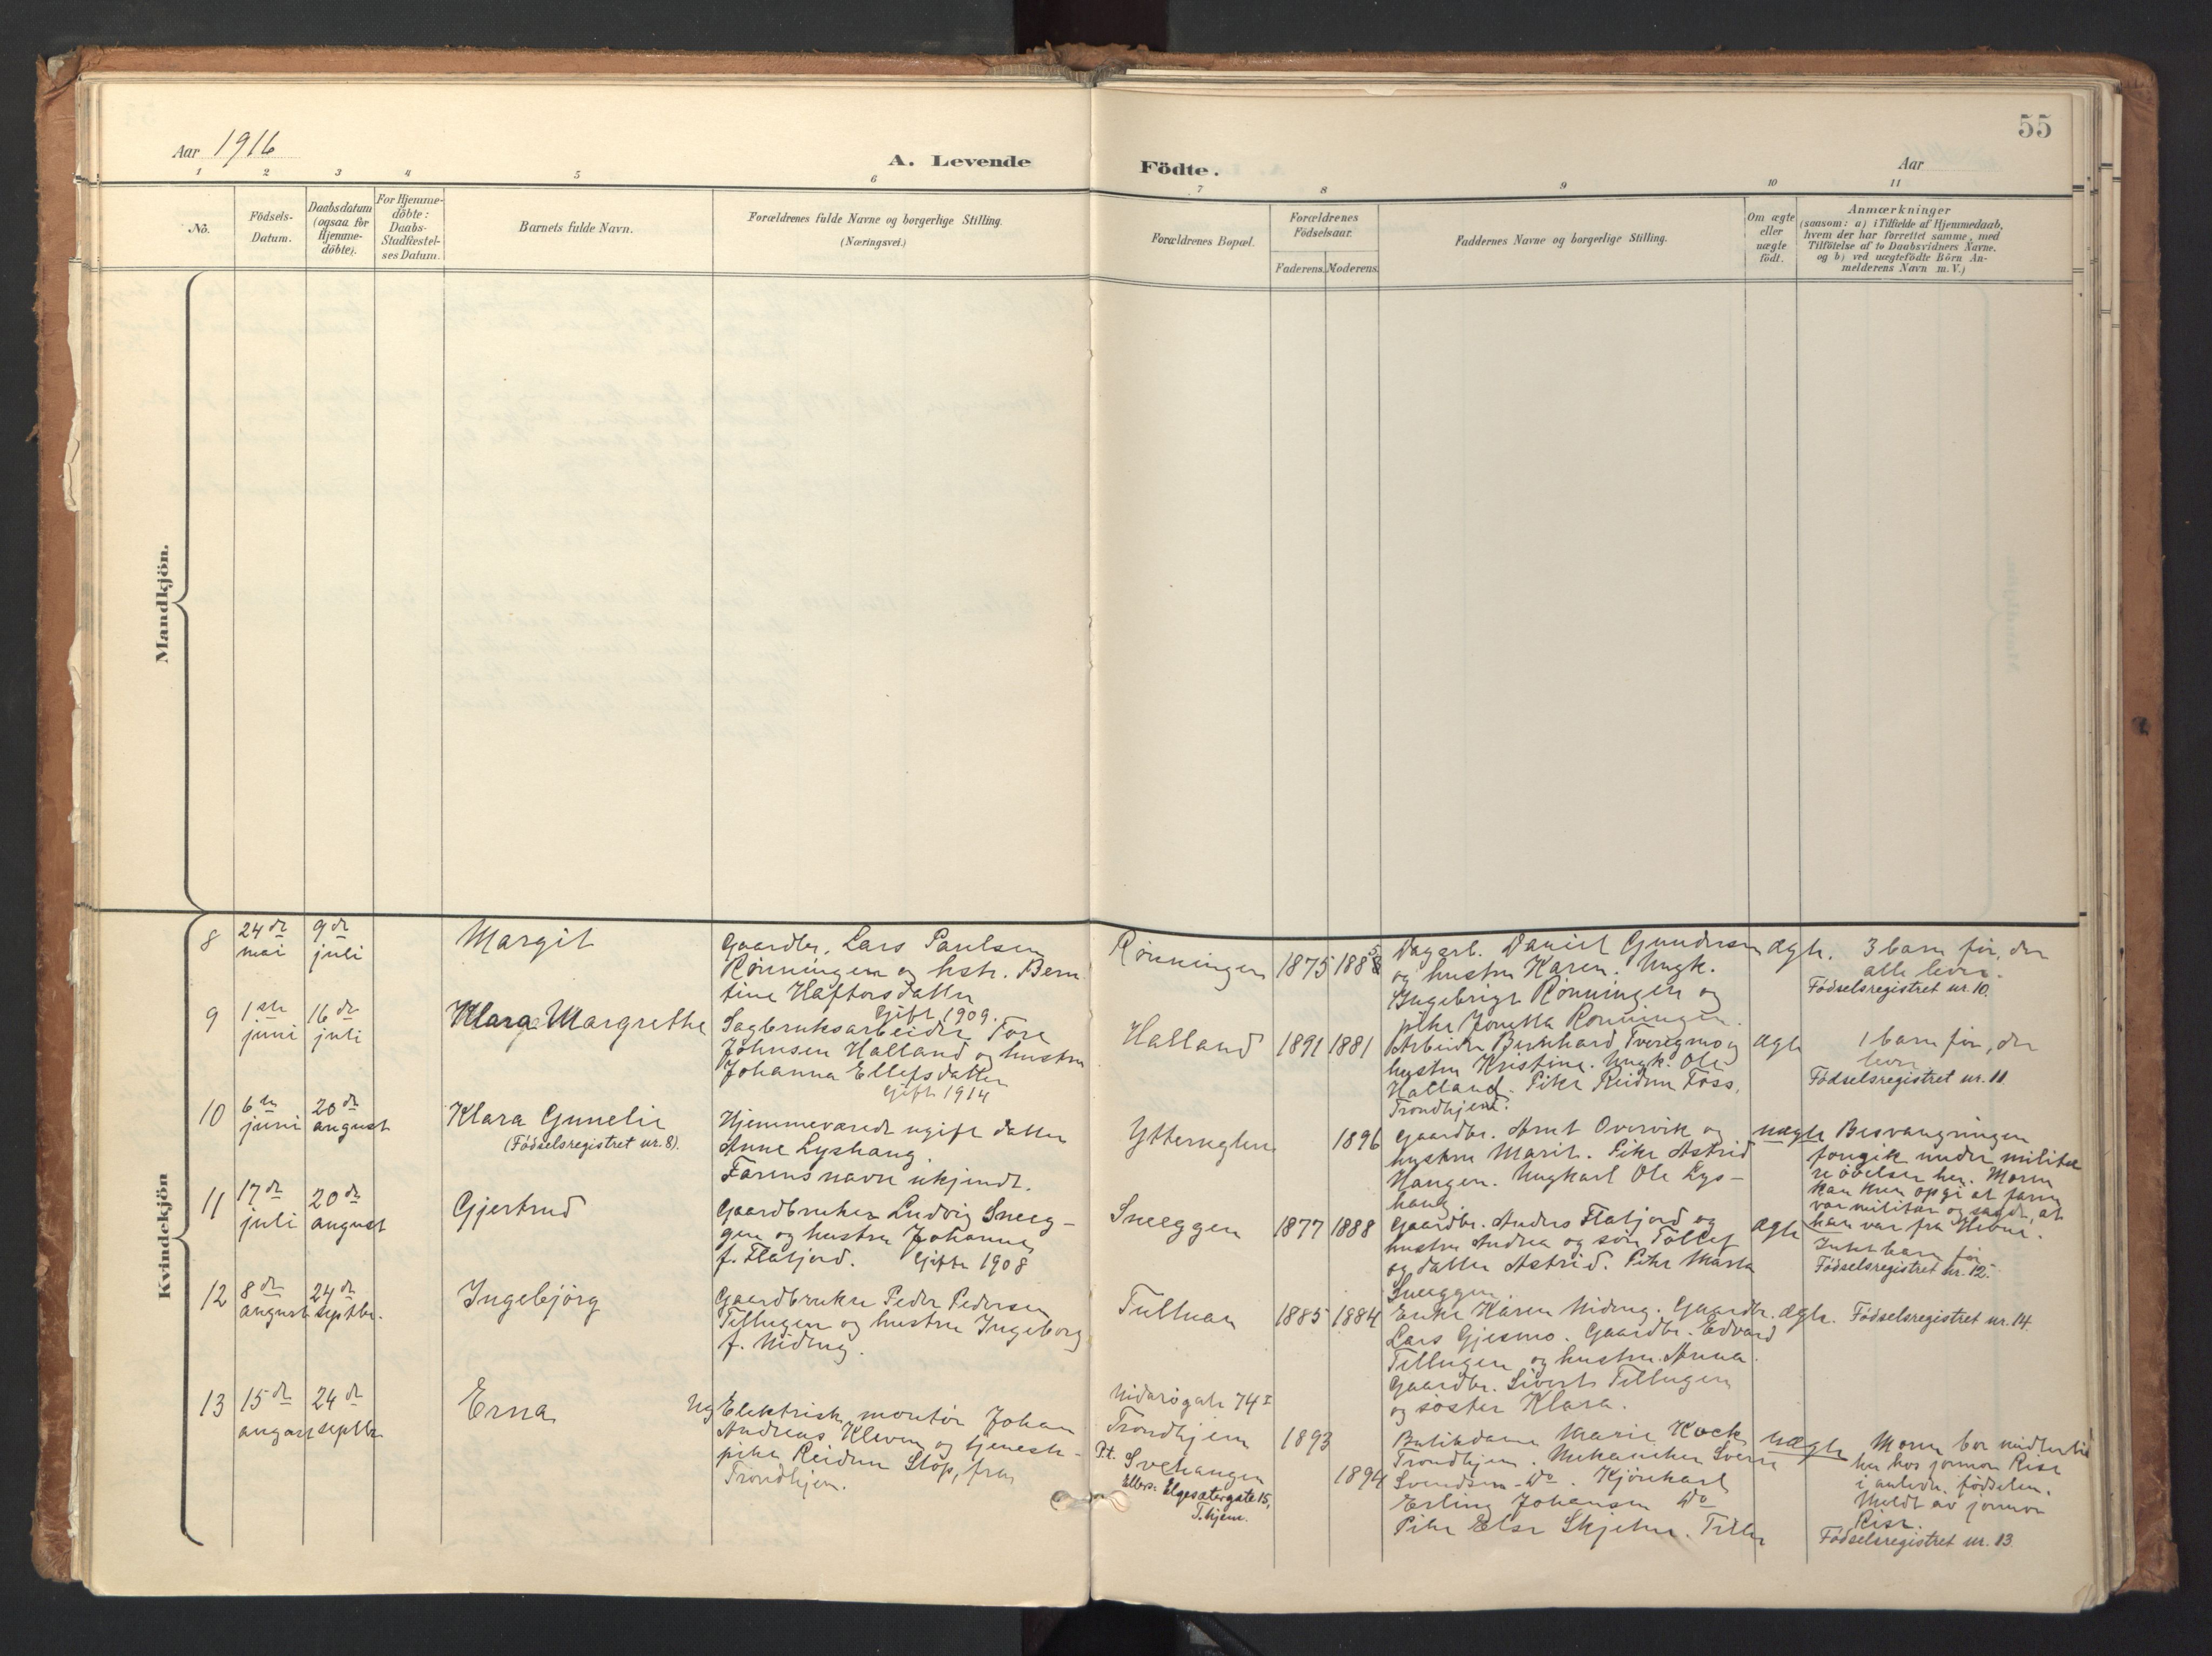 55
Aar 1916
A. Levende Födte.
Aar
1 2 3 4 5 6 7 8 9 10 11
No.
Födsels-
Datum.
Daabsdatum
(ogsaa for
Hjemme-
döbte).
For Hjemme-
döbte:
Daabs-
Stadfæstel-
ses Datum.
Barnets fulde Navn.
Forældrenes fulde Navne og borgerlige Stilling.
(Næringsvei.)
Forældrenes Bopæl.
Forældrenes
Födselsaar.
Faderens. Moderens.
Faddernes Navne og borgerlige Stilling.
Om ægte
eller
uægte
födt.
Anmærkninger
(saasom: a) i Tilfælde af Hjemmedaab,
hvem der har forrettet samme, med
Tilföielse af to Daabsvidners Navne.
og b) ved uægtefödte Börn An-
melderens Navn m. V.)
Mandkjön.
Kvindekjön
8
24de
mai
9de
juli
Margit
Gaardbr. Lars Paulsen
Rönningen og hstr. Bern-
tine Haftorsdatter
Gift 1909.
Rönningen
1875
1885
Dagarb. Daniel Gundersen
og hustru Karen. Ungk.
Ingebrigt Rönningen og
pike Jonetta Rönningen.
ægte.
3 barn før, der
alle lever.
Födselsregistret nr. 10.
9
1ste
juni
16de
juli
Klara Margrethe
Sagbruksarbeider Tore
Johnsen Halland og hustru
Johanna Ellefsdatter
Gift 1914
Halland
1891
1881
Arbeider Bernhard Tveregmo og
hustru Kristine. Ungk. Ole
Halland. Pike Reidun Foss,
Trondhjem.
ægte
1 barn før, der
lever
Födselsregistret nr. 11.
10
6te
juni
20de
august
Klara Gunelie
(Födselsregistret nr. 8).
Hjemmeværede ugift datter
Anne Lyshaug.
Farens navn ukjendt.
Ytteruglen
1896
Gaardbr. Arnt Overvik og
hustru Marit. Pike Astrid
Haugen. Ungkarl Ole Lys-
haug.
uægte
Besvangringen
foregik under militæ
re övelser her. Moren
kan kun opgi at faren
var militær og sagde, at
han var fra
11
17de
juli
20de
august
Gjertrud
Gaardbruker Ludvig Sneeg-
gen og hustru Johanna,
f. Flatjord. Gifte 1908
Sneeggen
1877
1888
Gaardbr. Anders Flatjord og
hustru Andrea og sön Tollef
og datter Astrid. Pike Marta
Sneeggen
ægte
Intet barn før
Födselsregistret nr. 12.
12
8de
august
24de
septbr.
Ingebjörg
Gaardbruker Peder Pedersen
Tellugen og hustru Ingeborg
f. Nideng.
Tulluan
1885
1884
Enke Karen Nideng. Gaardbr.
Lars Gjesmo. Gaardbr. Edvard
Tellugen og hustru Anna.
Gaardbr. Sivert Tellugen
og söster Klara.
ægte.
Födselsregistret nr. 14.
13
15de
august
24de
septbr
Erna
Ug Elektrisk montör Johan
Andreas Kleven og tjeneste-
pike Reidun Stöp, fra
Trondhjem.
Nidarögate 74 I
Trondhjem
Pt. Svehaugen
Ellers: Elgesætergate 15,
T.hjem.
1893
1894
Butikdame Marie Kock
Trondhjem. Mekaniker Sverre
Svendsen Do. Kjörekarl
Erling Johansen Do
Pike Else Skjetne. Tiller
uægte
Moren bor midlertid
her hos jormor Risr
i anledn. födselen.
Meldt av jormor
Risr.
Födselsregistret nr. 13.